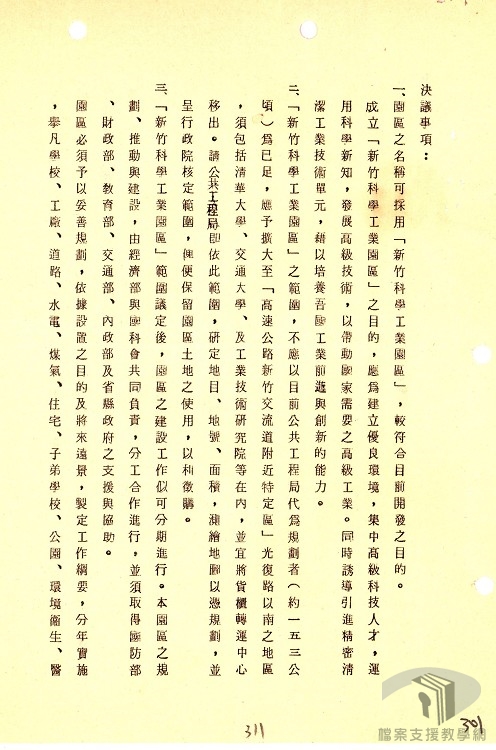 決議事項：
一、園區之名稱可採用「新竹科學工業園區」，較符合目前開發之目的。
成立「新竹科學工業園區」之目的，應為建立優良環境，集中高級科技人才，運
用科學新知，發展高級技術，以帶動國家需要之高級工業。同時誘導引進精密清
潔工業技術單元，藉以培養吾國工業前進與創新的能力。
二、「新竹科學工業園區」之範圍，不應以目前公共工程局代為規劃者（約一五三公
頃）為已足，應予擴大至「高速公路新竹交流道附近特定區」光復路以南之地區
，須包括清華大學、交通大學、及工業技術研究院等在內，並宜將貨櫃轉運中心
移出。請公共工程局即依此範圍，研定地目、地號、面積，測繪地圖以憑規劃，並
呈行政院核定範圍，俾便保留園區土地之使用，以利徵購。
三、「新竹科學工業園區」範圍議定後，園區之建設工作似可分期進行。本園區之規
劃、推動與建設，由經濟部與國科會共同負責，分工合作進行，並須取得國防部
、財政部、教育部、交通部、內政部及省縣政府之支援與協助。
園區必須予以妥善規劃，依據設置之目的及將來遠景，製定工作綱要，分年實施
，舉凡學校、工廠、道路、水電、煤氣、住宅、子弟學校、公園、環境衛生、醫
311
301
檔案支援教學網